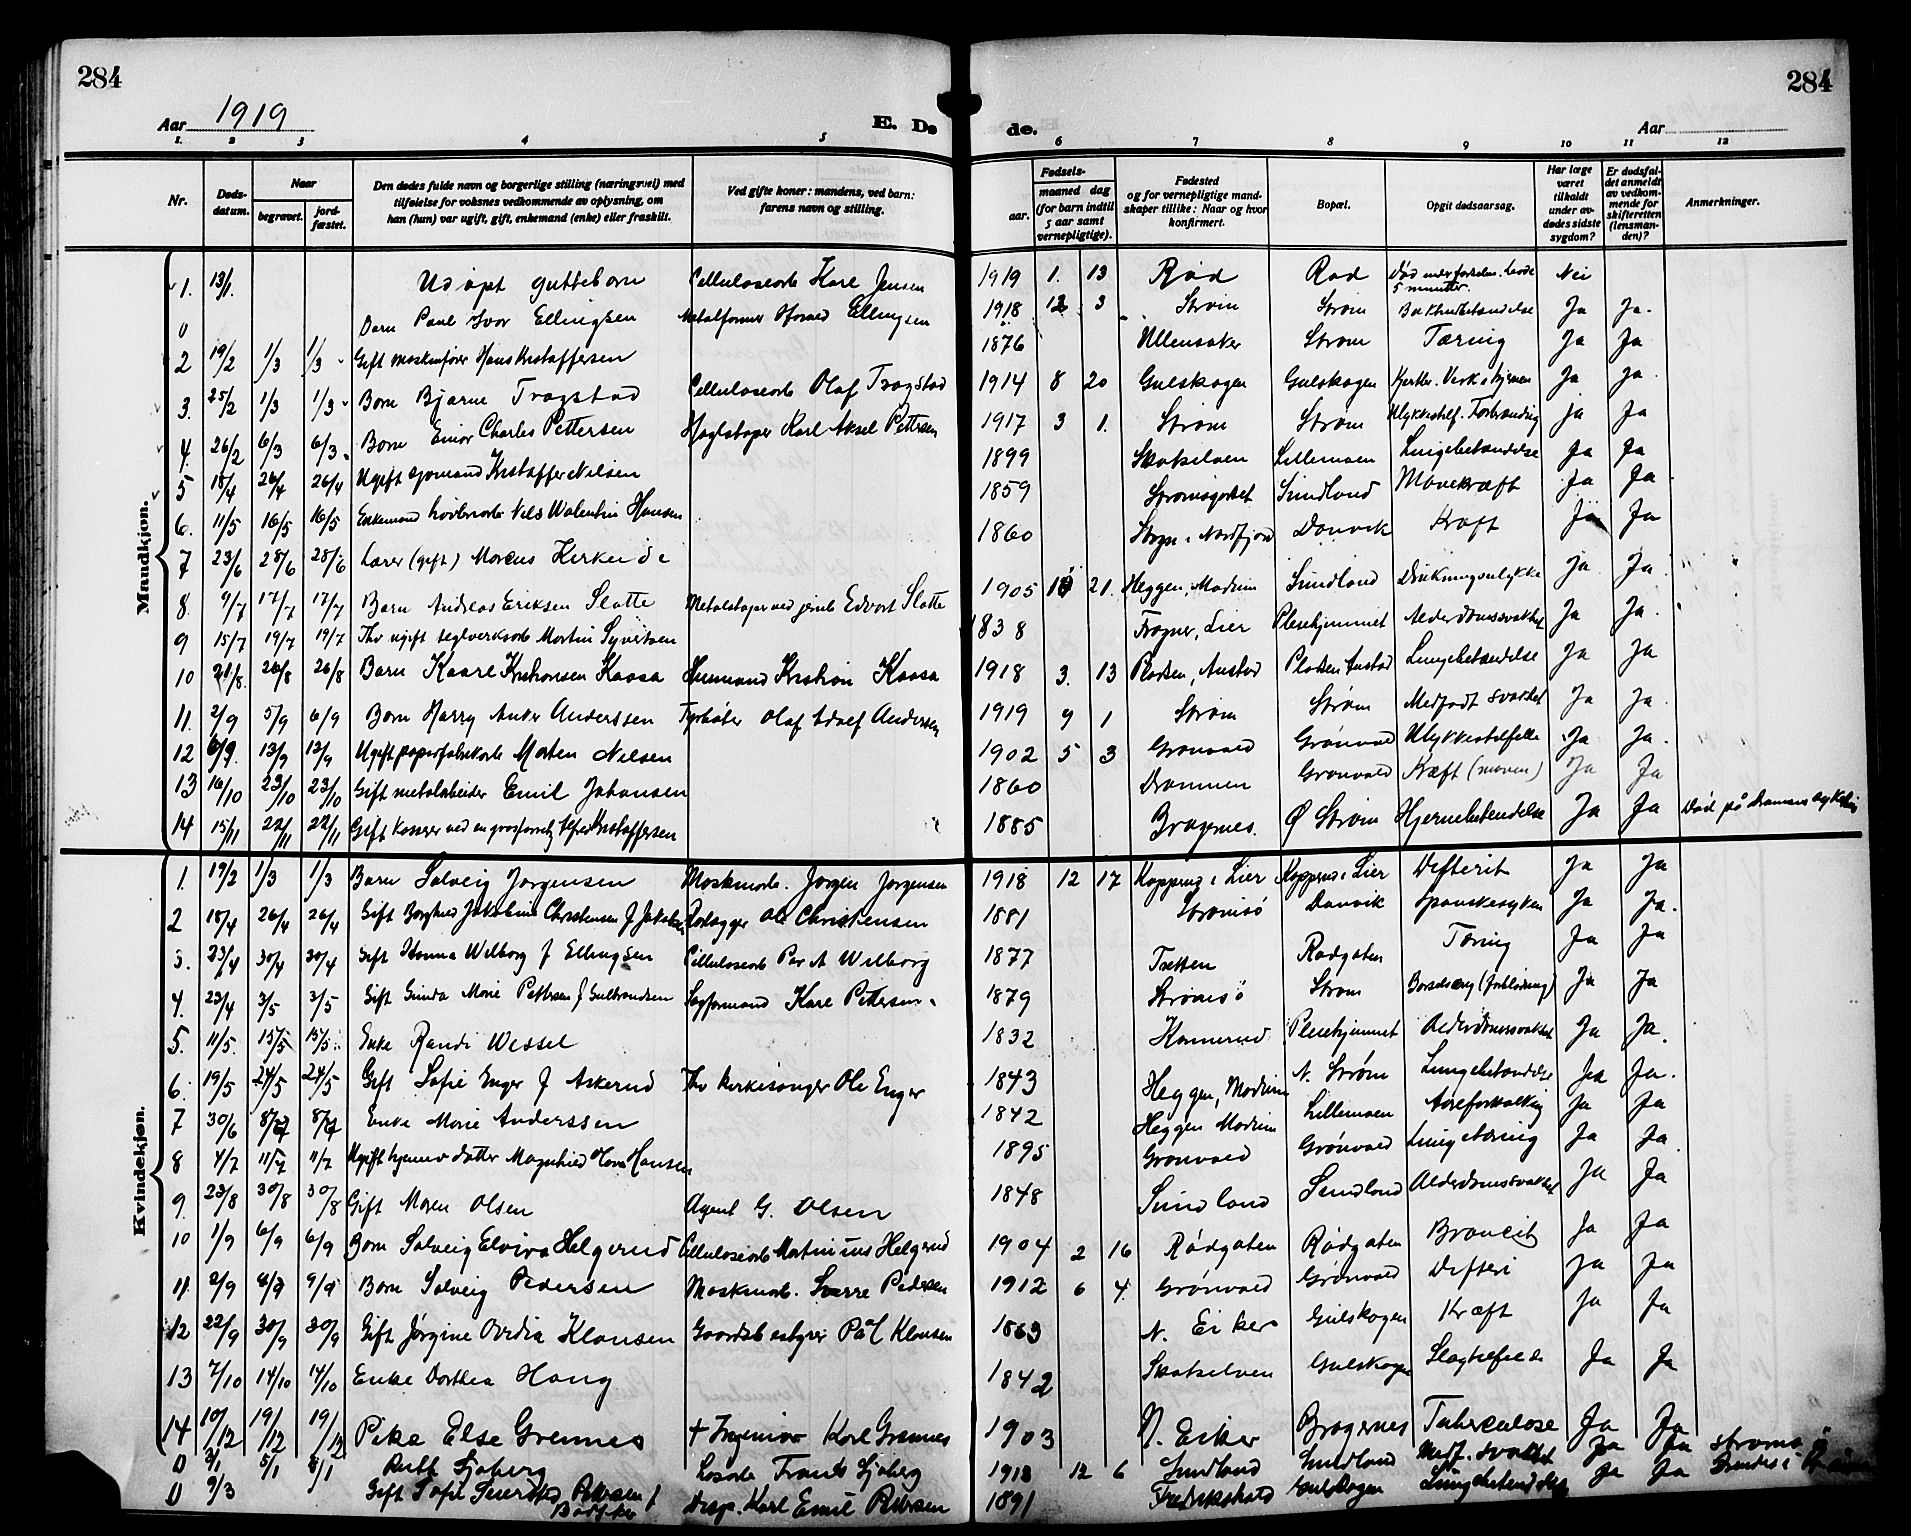 284
284
Aar 1919
E. Dø
de.
Aar
1. 2 3 4 5 6 7 8 9 10 11 12
Nr.
Døds-datum.
Naar
begravet.
jord-fæstet.
Den dødes fulde navn og borgerlige stilling (næringsvei) med
tilføielse for voksnes vedkommende av oplysning, om
han (hun) var ugift, gift, enkemand (enke) eller fraskilt.
Ved gifte koner: mandens, ved barn:
farens navn og stilling.
Fødsels-
aar.
maaned dag
(for barn indtil
5 aar samt
vernepligtige).
Fødested
og for vernepligtige mand-
skaper tillike: Naar og hvor
konfirmert.
Bopæl.
Opgit dødsaarsag.
Har læge
været
tilkaldt
under av-
dødes sidste
sygdom?
Er dødsfal-
det anmeldt
av vedkom-
mende for
skifteretten
(lensman-
den)?
Anmerkninger.
Mandkjøn.
1. 13/1. Udøpt guttebarn Cellulosearb Karl Jensen 1919 1. 13 Rød Rød 5 minutter. Nei
0 Barn Paul Ivar Ellingsen Ellingsen 1918 12 3 Strøm Strøm Ja Ja.
2 19/2 1/3 1/3 Gift maskinfører Hans Kristoffersen 1876 Ullensaker Strøm Tæring Ja Ja
3. 25/2 1/3 1/3 Barn Bjarne Trogstad Cellulosearb Olaf Trogstad 1914 8 20 Gulskogen Gulskogen Ja Ja.
4. 26/2 6/3 6/3 Barn Einar Charles Pettersen Karl Aksel Pettersen 1917 3 1. Strøm Strøm Ja Ja
5 18/4 26/4 26/4 Ugift sjømand Kristoffer Nilsen 1899 Skotselven Lillemoen Lungebetændelse Ja Ja
6. 11/5 16/5 16/5 Enkemand Nels Walentin Hansen 1859 Strømsgodset Sundland Mavekræft Ja Ja
7 23/6 28/6 28/6 Lærer (gift) Marcus Kirkeide 1860 Stryn i Nordfjord Danvik Kræft Ja Ja
8. 9/7 17/7 17/7 Barn Andreas Eriksen Slotte Edvart Slotte 1905 10 21. Heggen, Modum Sundland Drukningsulykke Ja Ja.
9 15/7 19/7 19/7 Fhv ugift teglverksarb Martin Syvertsen 1838 Frogner, Lier Pleiehjemmet Alderdomssvakhet Ja Ja.
10 21/8. 26/8 26/8 Barn Kaare Kristiansen Kaasa Kristian Kaasa 1918 3. 13 Pladsen, Austad Pladsen Austad Lungebetændelse Ja Ja
11. 2/9 5/9 6/9 Barn Harry Anker Anderssen Fyrbøter Olaf Adolf Andersen 1919 9 1 Strøm Strøm Medfødt svakhet Ja Ja.
12 6/9. 13/9 13/9 Ugift papirfabrikarb Morten Nilsen 1902 5 3 Grønvold Grønvold Ulykkestilfelle Ja Ja.
13 16/10 23/10 23/10 Gift metalarbeider Emil Johansen 1860 Drammen Grønvold Kræft (maven) Ja Ja
14 15/11 22/11 22/11 Gift Kristoffersen 1885 Bragernes. Ø Strøm Hjernebetendelse Ja Ja Død på Dramens sykehus
Kvindekjøn.
1. 19/2 1/3 1/3 Barn Solveig Jørgensen Maskinarb. Jørgen Jørgensen 1918 12 17 Kopperud i Lier Kopperud i Lier Difterit Ja Ja
2 18/4 26/4 26/4 Gift Borghild Jakobine Christensen f Jakobsen Ole Christensen 1881 Strømsø Danvik Spanskesyken Ja Ja.
3. 23/4 30/4 30/4 Gift Hanna Wilborg f Ellingsen Cellulosearb Per A Wilborg 1877 Tretten Rødgaten Tæring Ja Ja
4. 23/4 3/5 3/5 Gift Gunda Marie Pettersen f Gulbrandsen Sagformand Karl Pettersen 1879 Strømsø Strøm Barselseng (forblødning) Ja Ja
5. 11/5. 15/5 15/5 Enke Randi Wessel 1832 Konnerud Pleiehjemmet Alderdomssvakhet Ja Ja.
6. 19/5 24/5 24/5 Gift Sofie Enger f Askerud Fhv kirkesanger Ole Enger 1843 Heggen, Modum N. Strøm Lungebetændelse Ja Ja.
7 30/6 8/7 8/7 Enke Marie Anderssen 1842 Heggen Modum Lillemoen Aareforkalkning Ja Ja
8 4/7 11/7 11/7 Ugift hjemmev datter Magnhild Hansen 1895 Grønvold Grønvold Lungetæring Ja Ja
9. 23/8 30/8 30/8 Gift Maren Olsen Agent G. Olsen 1848 Sundland Sundland Alderdomssvakhet Ja Ja
10 1/9 6/9 6/9 Barn Solveig Elvira Helgerud Cellulosearb Martinius Helgerud 1904 2 16 Rødgaten Rødgaten Broncit Ja Ja
11 2/9 8/9 9/9 Barn Solveig Pedersen Maskinarb. Sverre Pedersen 1912 6 4. Grønvold Grønvold Difteri Ja Ja
12 22/9 30/9 30/9 Gift Jørgine Ovidia Klausen Gaardsbestyrer Pål Klausen 1863 N. Eiker Gulskogen Kræft Ja Ja
13 7/10 14/10 14/10 Enke Dorthea Haug 1842 Skotselven Gulskogen Slagtilfelde Ja Ja
14 10/12 19/12 19/12 Pike Else Grennes + Ingeniør Karl Grennes 1903 N. Eiker Bragernes Tuberculose Ja Ja
0 2/1 5/1 5/1 Ruth Sjøberg Løsarb Frants Sjøberg 1918 12 6 Sundland Sundland Medf. svakhet Ja Ja Strømsø
0 9/3 Gift Sofie Pettersen f Disp. Karl Emil Pettersen 1891 Fredrikshald Gulskogen Lungebetændelse Ja Ja